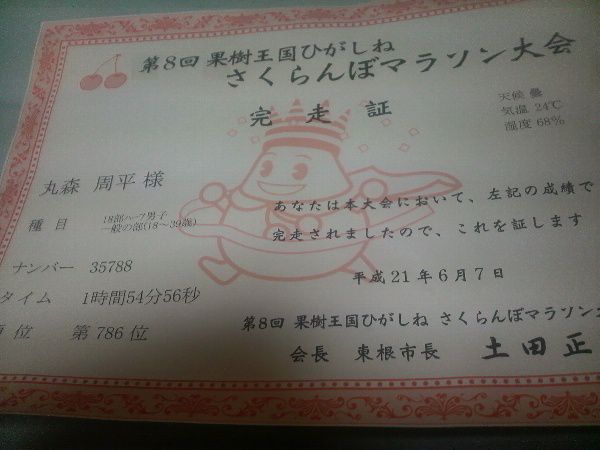 第8回 果樹王国ひがしね
さくらんぼマラソン大会
完走証
天候 曇
気温 24℃
湿度 68%
丸森 周平 様
種目 18部ハーフ男子
一般の部(18～39歳)
ナンバー 35788
タイム 1時間54分56秒
順位 第786位
あなたは本大会において、左記の成績で
完走されましたので、これを証します
平成21年6月7日
第8回 果樹王国ひがしね さくらんぼマラソン大
会長 東根市長 土田正